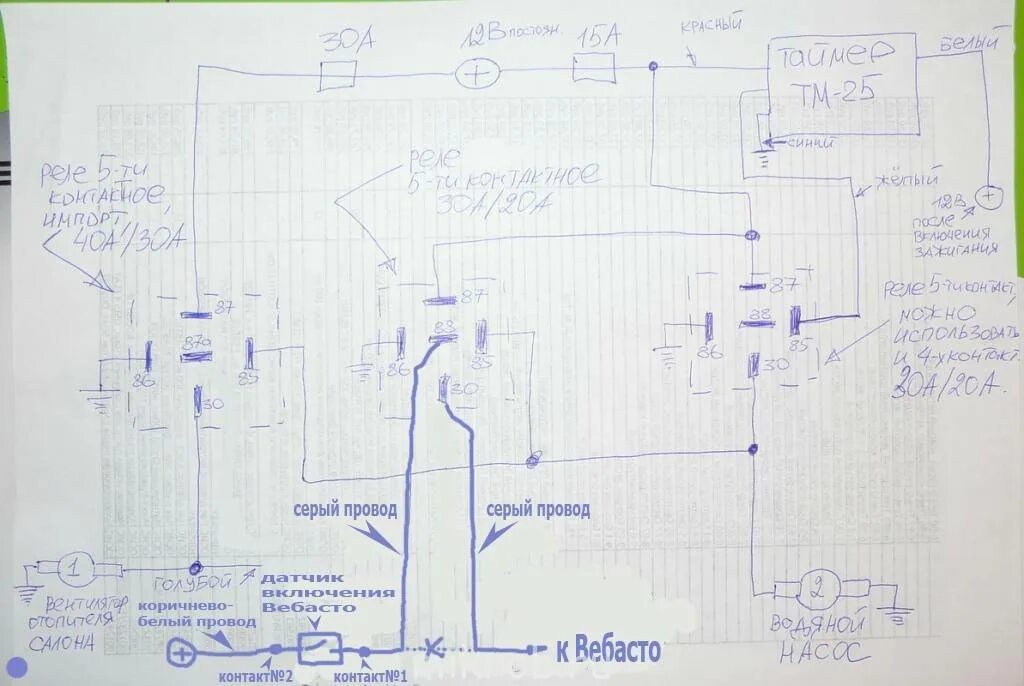 30А
12В постоян.
15А
КРАСНЫЙ
Таймер
ТМ-25
БЕЛЫЙ
СИНИЙ
ЖЁЛТЫЙ
12В
ПОСЛЕ
ВКЛЮЧЕНИЯ
ЗАЖИГАНИЯ
РЕЛЕ 5-ТИ
КОНТАКТНОЕ,
ИМПОРТ,
40А/30А
РЕЛЕ
5-ТИ КОНТАКТНОЕ
30А/20А
87
87а
86
85
30
87
88
86
85
30
87
88
86
85
30
РЕЛЕ 5-ТИ КОНТАКТ,
МОЖНО
ИСПОЛЬЗОВАТЬ
И 4-Х КОНТАКТ.
30А/20А.
серый провод
серый провод
1
ГОЛУБОЙ
ВЕНТИЛЯТОР
ОТОПИТЕЛЯ
САЛОНА
датчик
включения
Вебасто
коричнево-
белый провод
контакт№2
контакт№1
к Вебасто
2
ВОДЯНОЙ
НАСОС